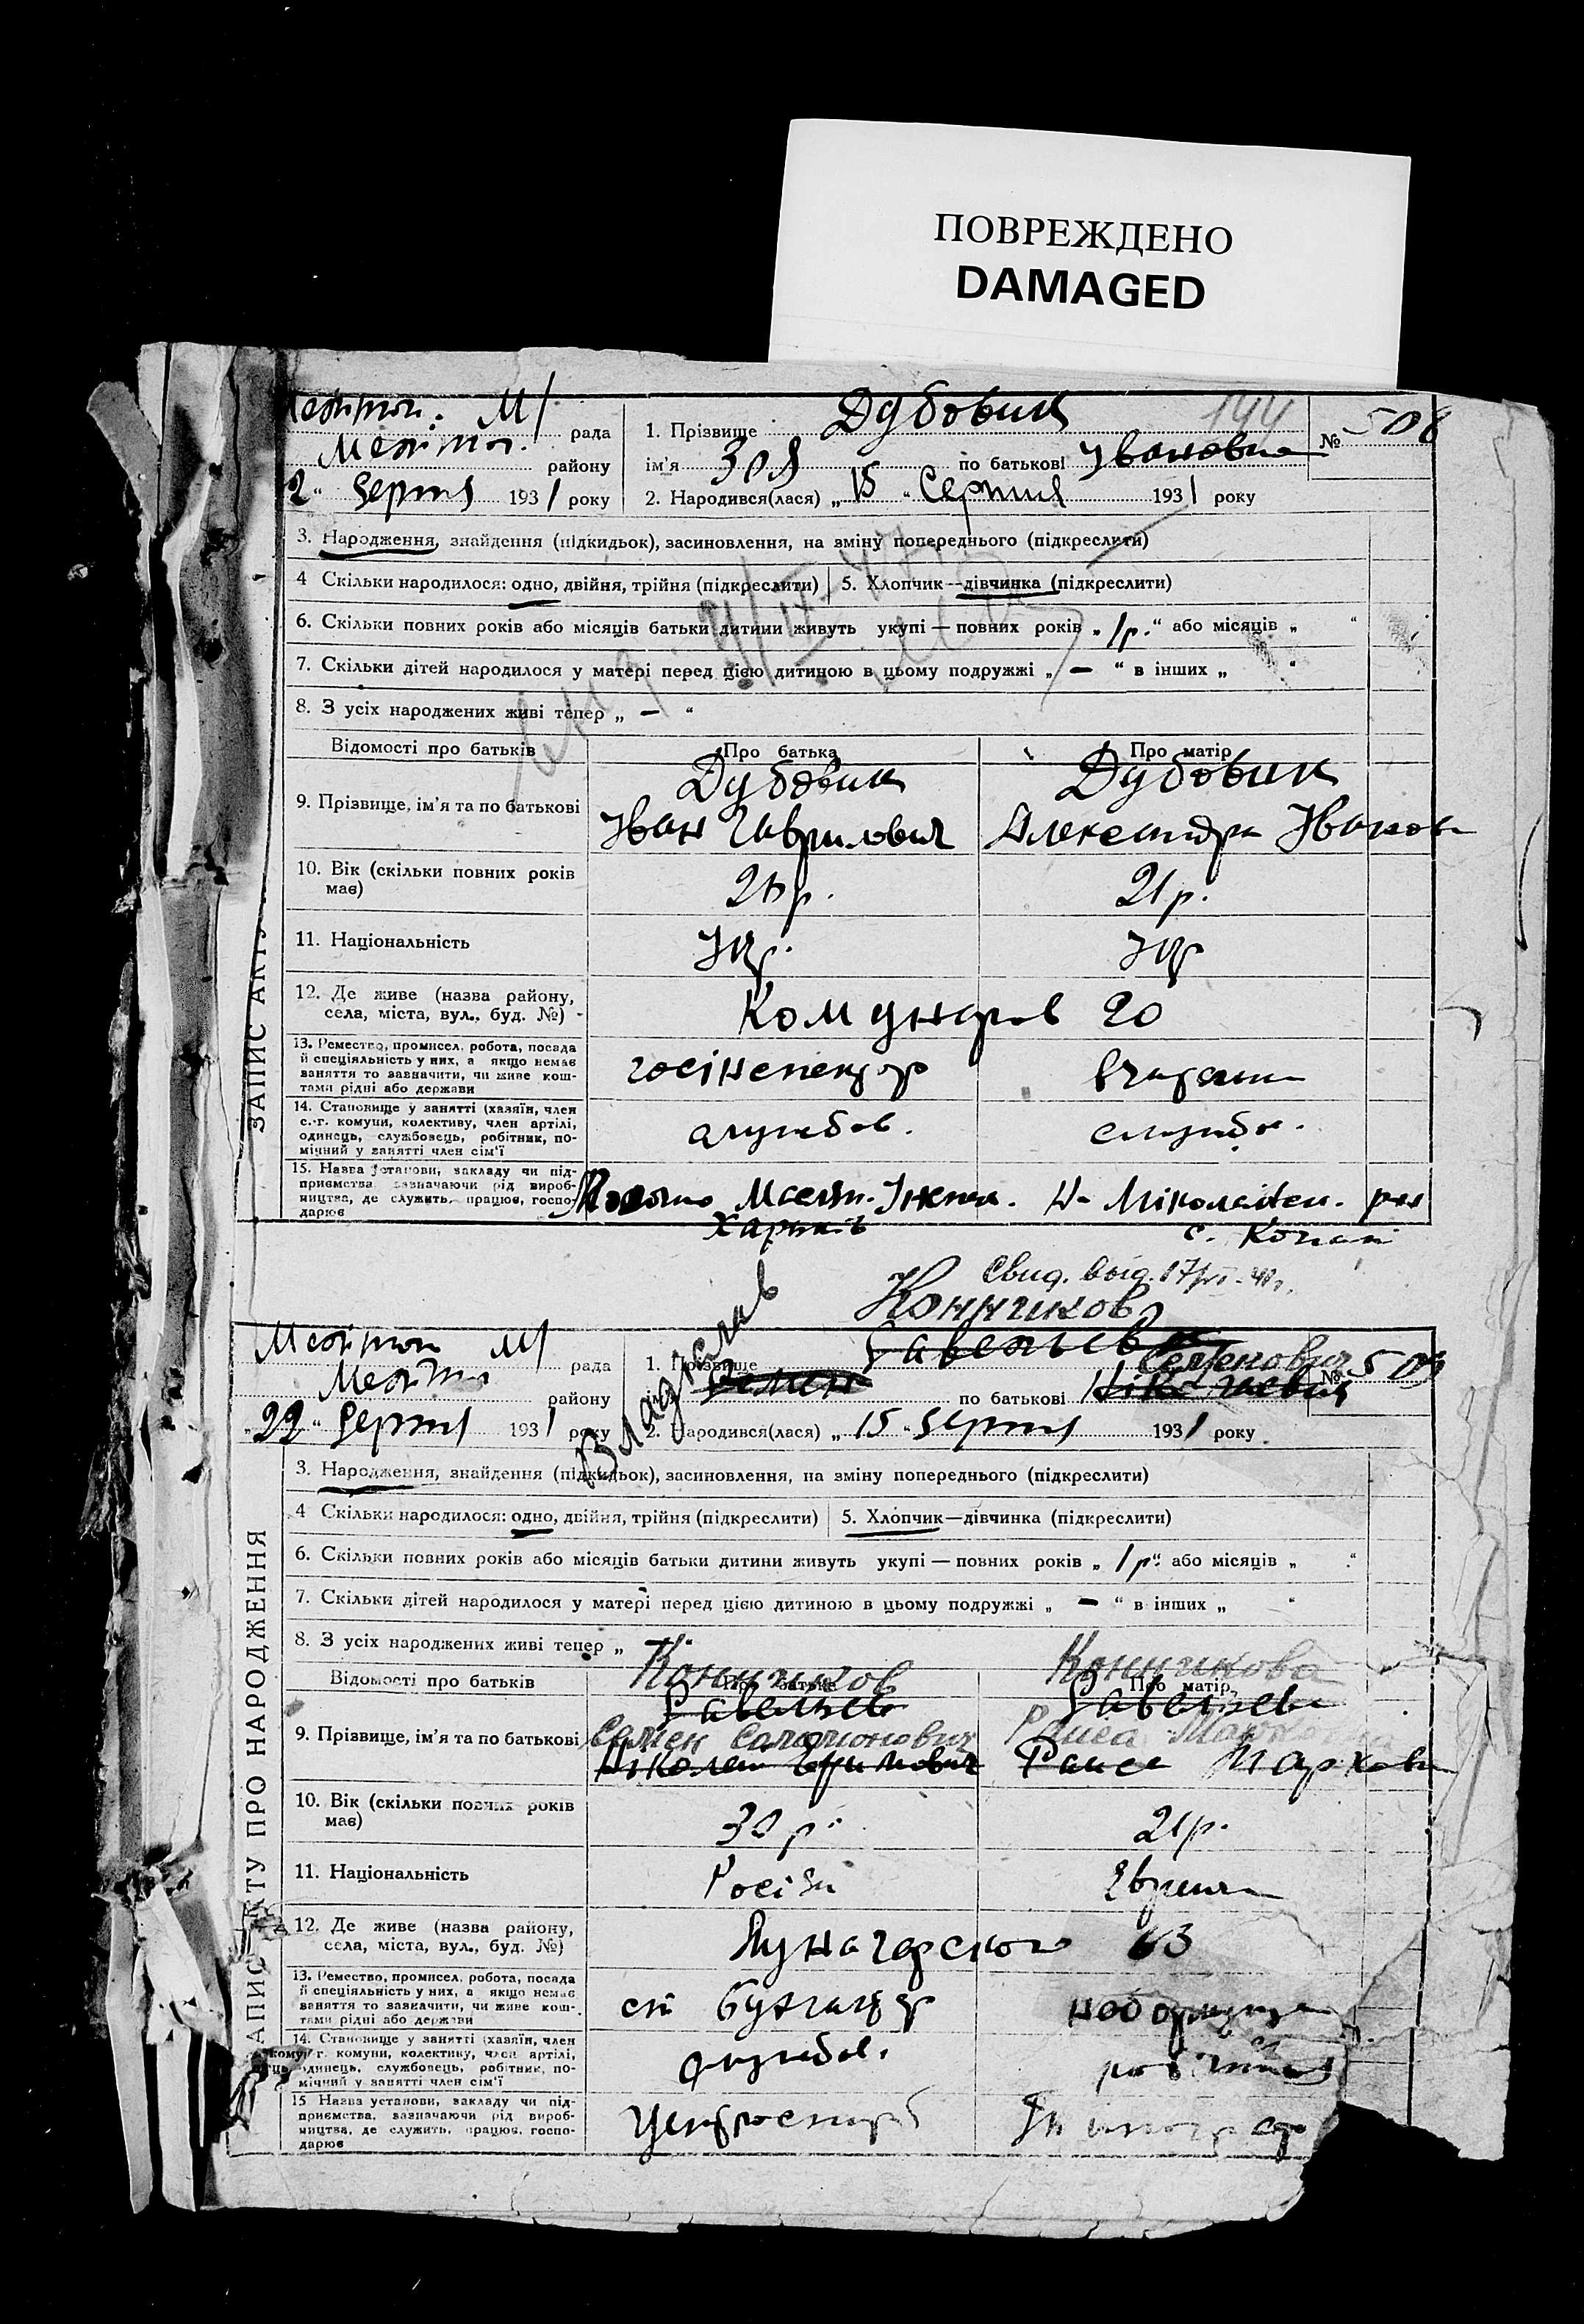 ПОВРЕЖДЕНО
DAMAGED
М/ рада
району
Серпня 1931 року
1. Прізвище Дубовик 144
ім'я Зоя по батькові Івановна
№ 508
2. Народився(лася) „ 15 " Серпня 1931 року
3. Народження, знайдення (підкидьок), засиновлення, на зміну попереднього (підкреслити)
4 Скільки народилося: одно, двійня, трійня (підкреслити) 5. Хлопчик—дівчинка (підкреслити)
6. Скільки повних років або місяців батьки дитини живуть укупі — повних років „ 1 р. " або місяців „ "
7. Скільки дітей народилося у матері перед цією дитиною в цьому подружжі „ — " в інших „ "
8. З усіх народжених живі тепер „ — "
Відомості про батьків Про батька Про матір
9. Прізвище, ім'я та по батькові Дубовик Іван Гаврилович Дубовик Александра Іванов
10. Вік (скільки повних років має) р. 21 р.
11. Національність Укр. Укр
12. Де живе (назва району, села, міста, вул., буд. №) Комунаров 20
13. Ремество, промисел, робота, посада й спеціяльність у них, а якщо немає заняття то зазначити, чи живе коштами рідні або держави
14. Становище у занятті (хазяїн, член с.-г. комуни, колективу, член артілі, одинець, службовець, робітник, помічний у занятті член сім'ї службов. службо.
15. Назва установи, закладу чи підприємства зазначаючи рід виробництва, де служить, працює, господарює
Харьків
ЗАПИС АКТУ
Свид. выд. 17
Конников
М/ рада
району
22 " Серпня 1931 року
1. Прізвище Савельев
Владислав
Семенович
по батькові
№ 509
2. Народився(лася) „ 15 " Серпня 1931 року
3. Народження, знайдення (підкидьок), засиновлення, на зміну попереднього (підкреслити)
4 Скільки народилося: одно, двійня, трійня (підкреслити) 5. Хлопчик—дівчинка (підкреслити)
6. Скільки повних років або місяців батьки дитини живуть укупі — повних років „ 1 р " або місяців „ "
7. Скільки дітей народилося у матері перед цією дитиною в цьому подружжі „ — " в інших „ "
8. З усіх народжених живі тепер „
Конников Конникова
Відомості про батьків Про батька Про матір
Савельев Савельева
9. Прізвище, ім'я та по батькові Семен Соломонович Раиса
Раиса Марков
10. Вік (скільки повних років має) 30 р. 21 р.
11. Національність
12. Де живе (назва району, села, міста, вул., буд. №) Луначарского 63
13. Ремество, промисел, робота, посада й спеціяльність у них, а якщо немає заняття то зазначити, чи живе коштами рідні або держави ст бухгалтер
14. Становище у занятті (хазяїн, член с.-г. комуни, колективу, член артілі, одинець, службовець, робітник, помічний у занятті член сім'ї службов.
15 Назва установи, закладу чи підприємства, зазначаючи рід виробництва, де служить, працює, господарює
ЗАПИС АКТУ ПРО НАРОДЖЕННЯ